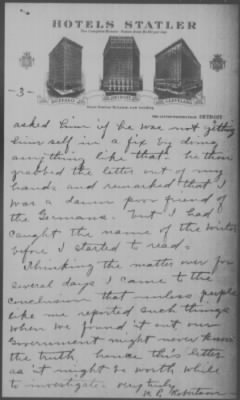 HOTELS STATLER
BUFFALO
DETROIT
CLEVELAND
DETROIT
-3-
asked him if he was not getting
him self in a fix by doing
anything like that. he then
grabbed the letter out of my
hands and remarked that I
was a damn poor friend of
the Germans. but I had
caught the name of the writer
before I started to read.
Thinking the matter over for
several days I came to the
conclusion that unless people
like me reported such things
when we found it out our
Government might never know
the truth, hence this letter
as it might be worth while
to investigate. very truly
Robertson